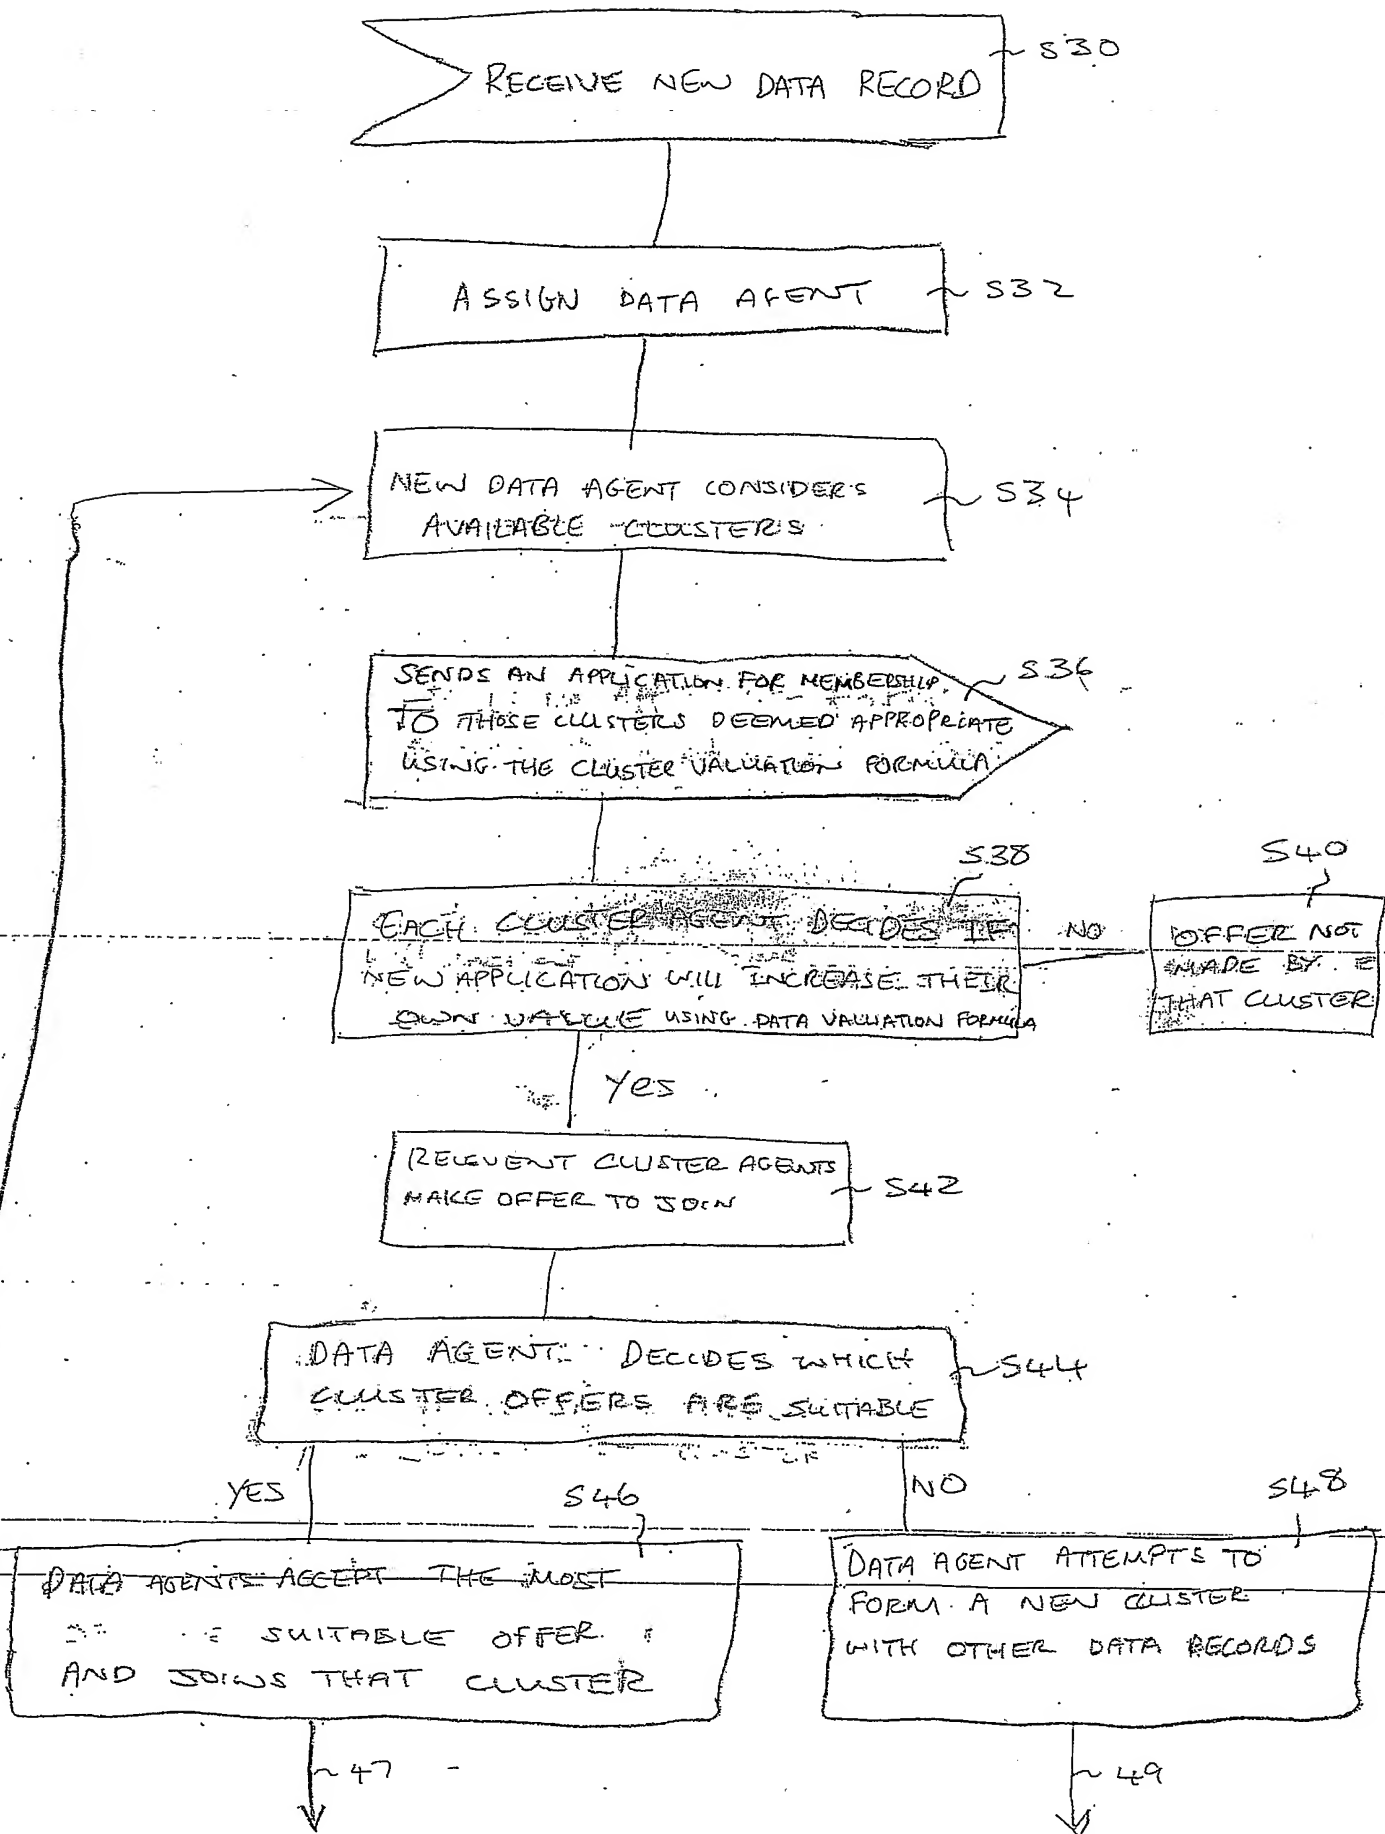 RECEIVE NEW DATA RECORD
S30
ASSIGN DATA AGENT
S32
NEW DATA AGENT CONSIDERS
AVAILABLE CLUSTERS
S34
SENDS AN APPLICATION FOR MEMBERSHIP
TO THOSE CLUSTERS DEEMED APPROPRIATE
USING THE CLUSTER VALUATION FORMULA
S36
S38
EACH CLUSTER AGENT DECIDES IF
NEW APPLICATION WILL INCREASE THEIR
OWN VALUE USING DATA VALUATION FORMULA
NO
S40
OFFER NOT
MADE BY
THAT CLUSTER
Yes
RELEVENT CLUSTER AGENTS
MAKE OFFER TO JOIN
S42
DATA AGENT DECIDES WHICH
CLUSTER OFFERS ARE SUITABLE
S44
YES
S46
NO
S48
DATA AGENTS ACCEPT THE MOST
SUITABLE OFFER
AND JOINS THAT CLUSTER
DATA AGENT ATTEMPTS TO
FORM A NEW CLUSTER
WITH OTHER DATA RECORDS
47
49